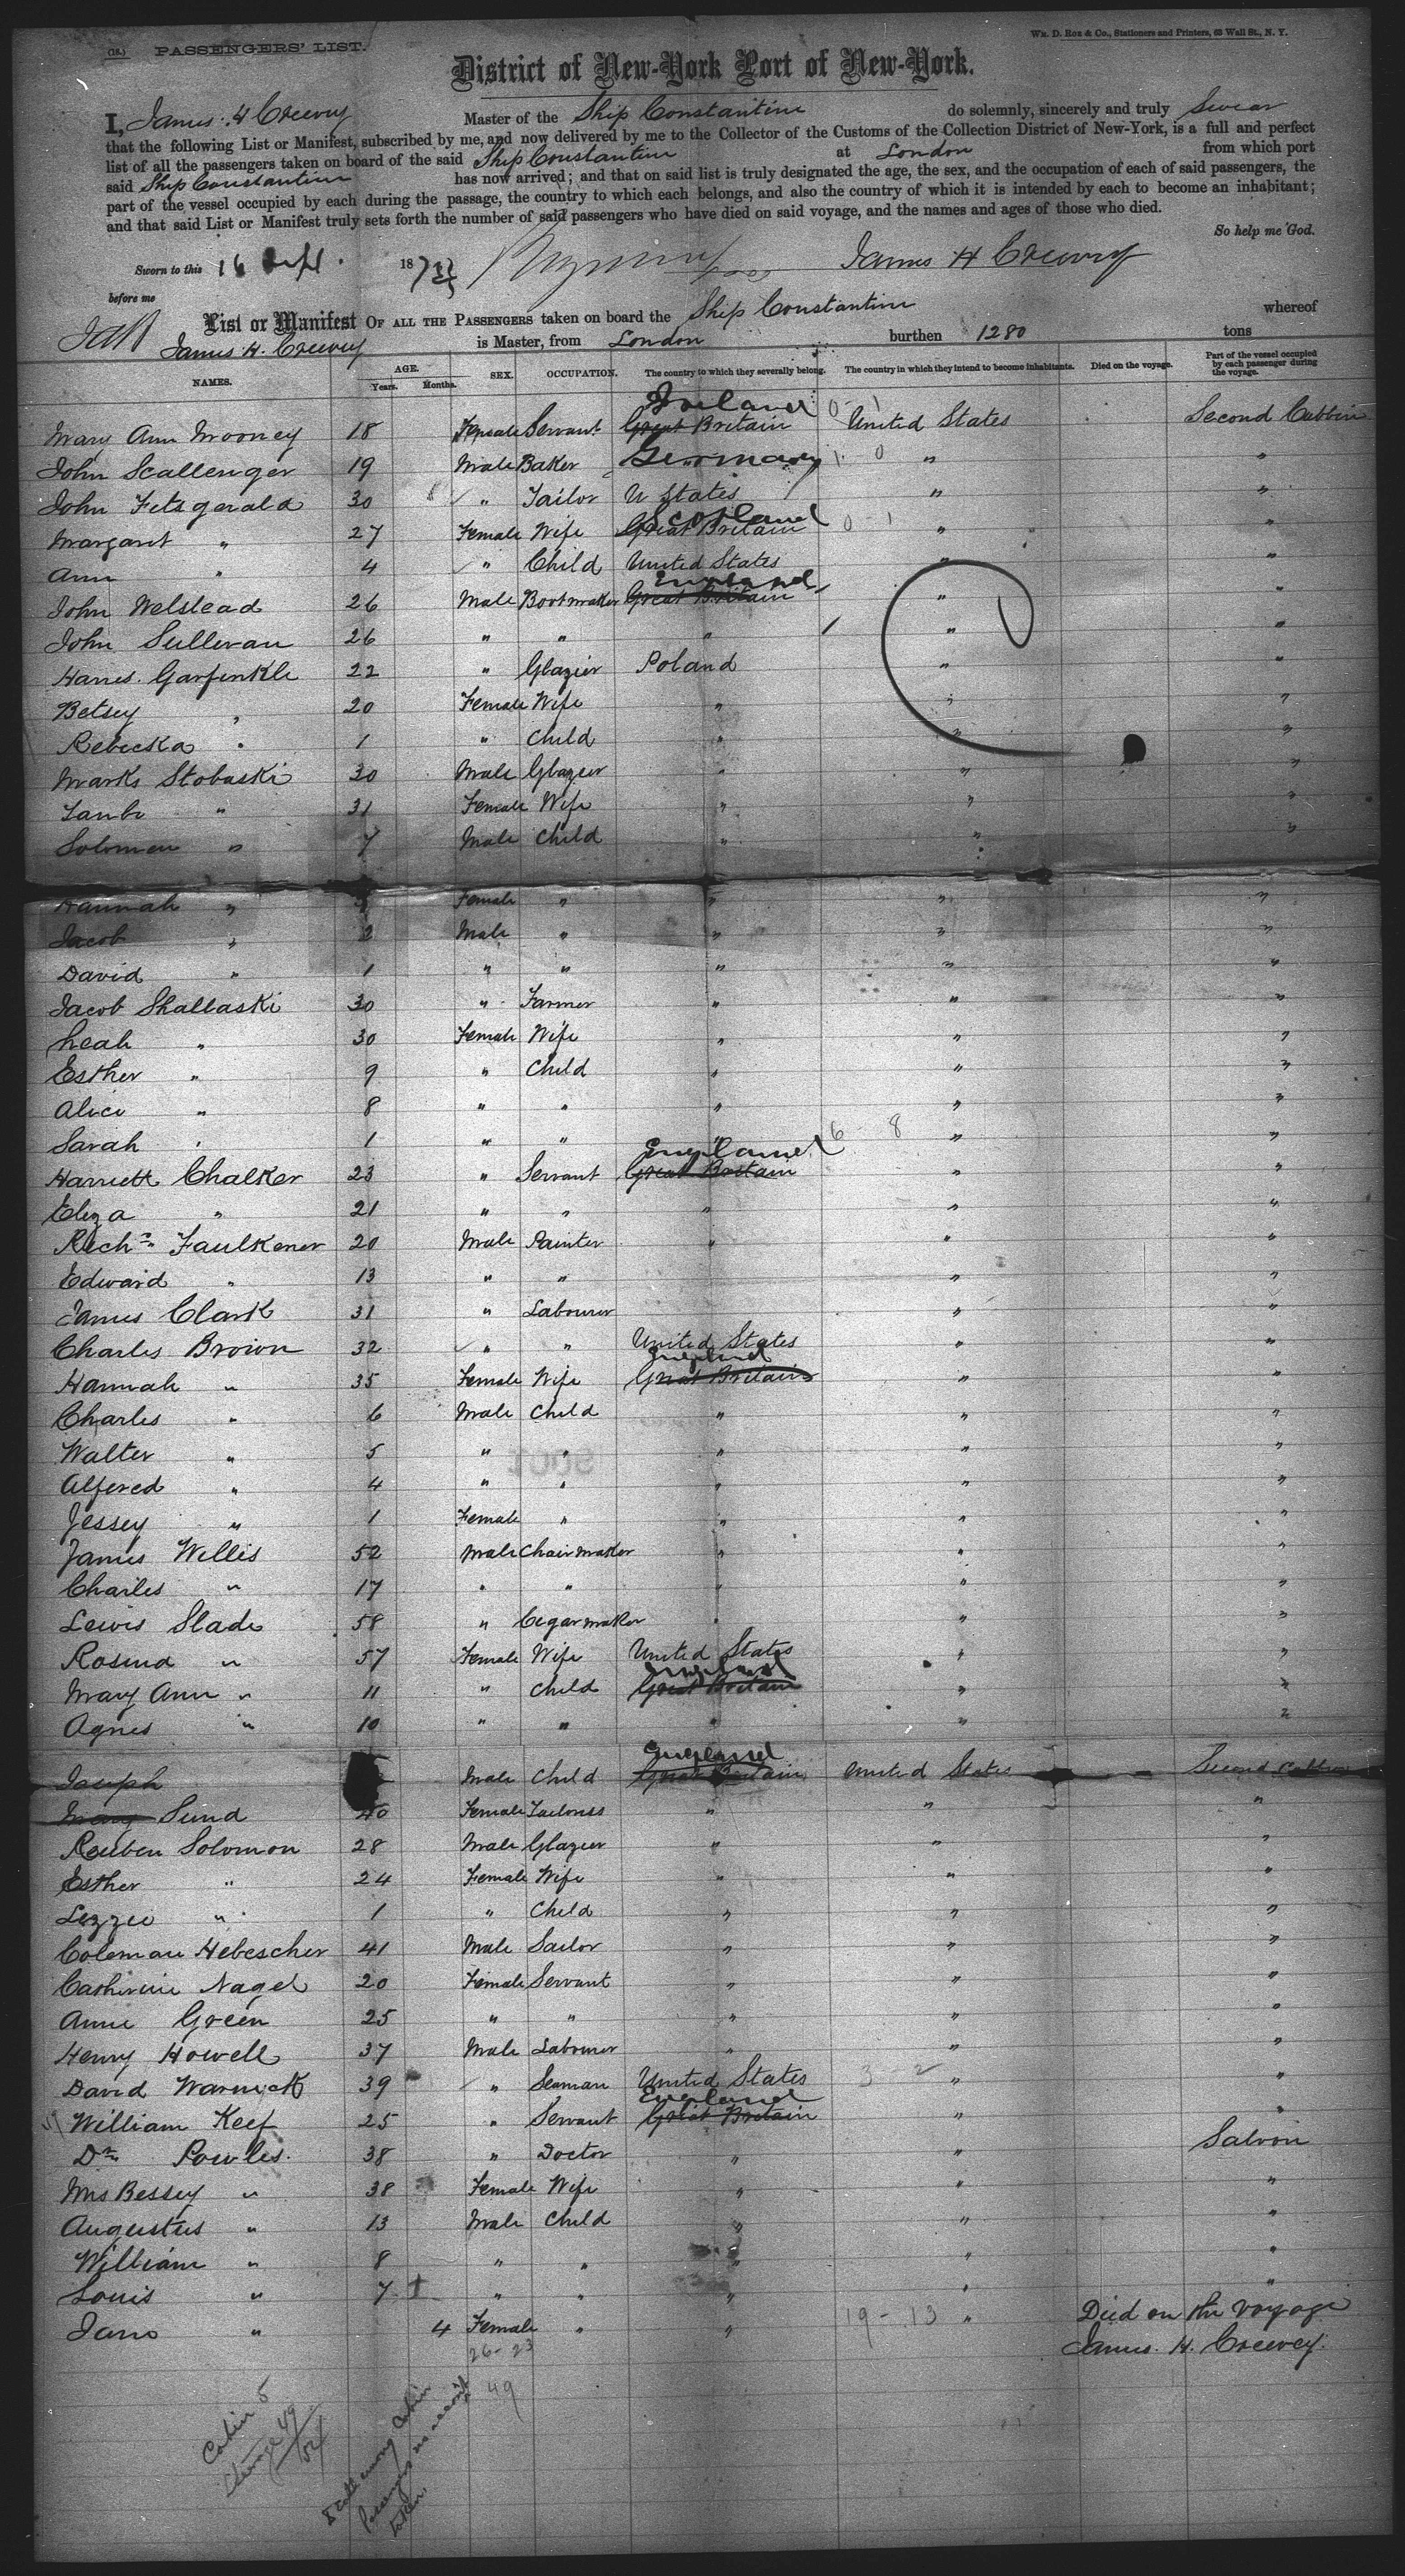 (18.) PASSENGERS' LIST.
WM. D. ROE & CO., Stationers and Printers, 63 Wall St., N. Y.
District of New-York Port of New-York.
I, James H Creevey Master of the Ship Constantine do solemnly, sincerely and truly Swear
that the following List or Manifest, subscribed by me, and now delivered by me to the Collector of the Customs of the Collection District of New-York, is a full and perfect
list of all the passengers taken on board of the said Ship Constantine at London from which port
said Ship Constantine has now arrived; and that on said list is truly designated the age, the sex, and the occupation of each of said passengers, the
part of the vessel occupied by each during the passage, the country to which each belongs, and also the country of which it is intended by each to become an inhabitant;
and that said List or Manifest truly sets forth the number of said passengers who have died on said voyage, and the names and ages of those who died.
So help me God.
Sworn to this 16 Sept. 187 James H Creevey
before me
List or Manifest OF ALL THE PASSENGERS taken on board the Ship Constantine whereof
James H. Creevey is Master, from London burthen 1280 tons
NAMES. AGE. Years. Months. SEX. OCCUPATION. The country to which they severally belong. The country in which they intend to become inhabitants. Died on the voyage. Part of the vessel occupied by each passenger during the voyage.
Ireland 0-1
Mary Ann Mooney 18 Female Servant Great Britain United States Second Cabbin
John Scallenger 19 Male Baker Germany 1-0 " "
John Fitsgerald 30 " Tailor U States " "
Scotland
Margaret " 27 Female Wife Great Britain 0-1 " "
Ann " 4 " Child United States " "
England
John Welstead 26 Male Bootmaker Great Britain " "
John Sullivan 26 " " " " "
Harris Garfinkle 22 " Glazier Poland " "
Betsey " 20 Female Wife " " "
Rebecka " 1 " Child " " "
Marks Stobaski 30 Male Glazier " " "
" 31 Female Wife " " "
Solomon " 7 Male Child " " "
Hannah " Female " " " "
Jacob " 2 Male " " " "
David " 1 " " " " "
Jacob Shallaski 30 " Farmer " " "
Leah " 30 Female Wife " " "
Esther " 9 " Child " " "
Alice " 8 " " " " "
Sarah " 1 " " " 6-8 " "
England
Harriett Chalker 23 " Servant Great Britain " "
Eliza " 21 " " " " "
Richd Faulkener 20 Male Painter " " "
Edward " 13 " " " "
James Clark 31 " Labourer " "
Charles Brown 32 " " United States " "
England
Hannah " 35 Female Wife Great Britain " "
Charles " 6 Male Child " " "
Walter " 5 " " " " "
Alfered " 4 " " " " "
Jessey " 1 Female " " " "
James Willis 52 Male Chairmaker " " "
Charles " 17 " " " " "
Lewis Slade 58 " Cigarmaker " " "
Rosina " 57 Female Wife United States " "
England
Mary Ann " 11 " Child Great Britain " "
Agnes " 10 " " " " "
England
Joseph Male Child Great Britain United States Second Cabbin
Mary Sund 40 Female Tailoress " " "
Reuben Solomon 28 Male Glazier " " "
Esther " 24 Female Wife " " "
Lizzie " 1 " Child " " "
Coleman Hebescher 41 Male Sailor " " "
Catherine Nagel 20 Female Servant " " "
Anne Green 25 " " " " "
Henry Howell 37 Male Labourer " " "
David Warwick 39 " Seaman United States 3-2 " "
England
William Keef 25 " Servant Great Britain " "
Dr Powles 38 " Doctor " " Saloon
Mrs Bessey " 38 Female Wife " " "
Augustus " 13 Male Child " " "
William " 8 " " " " "
Louis " 7 " " " " "
Jane " 4 Female " " 19-13 " Died on the voyage
26-23 James H. Creevey.
49
Cabin 5